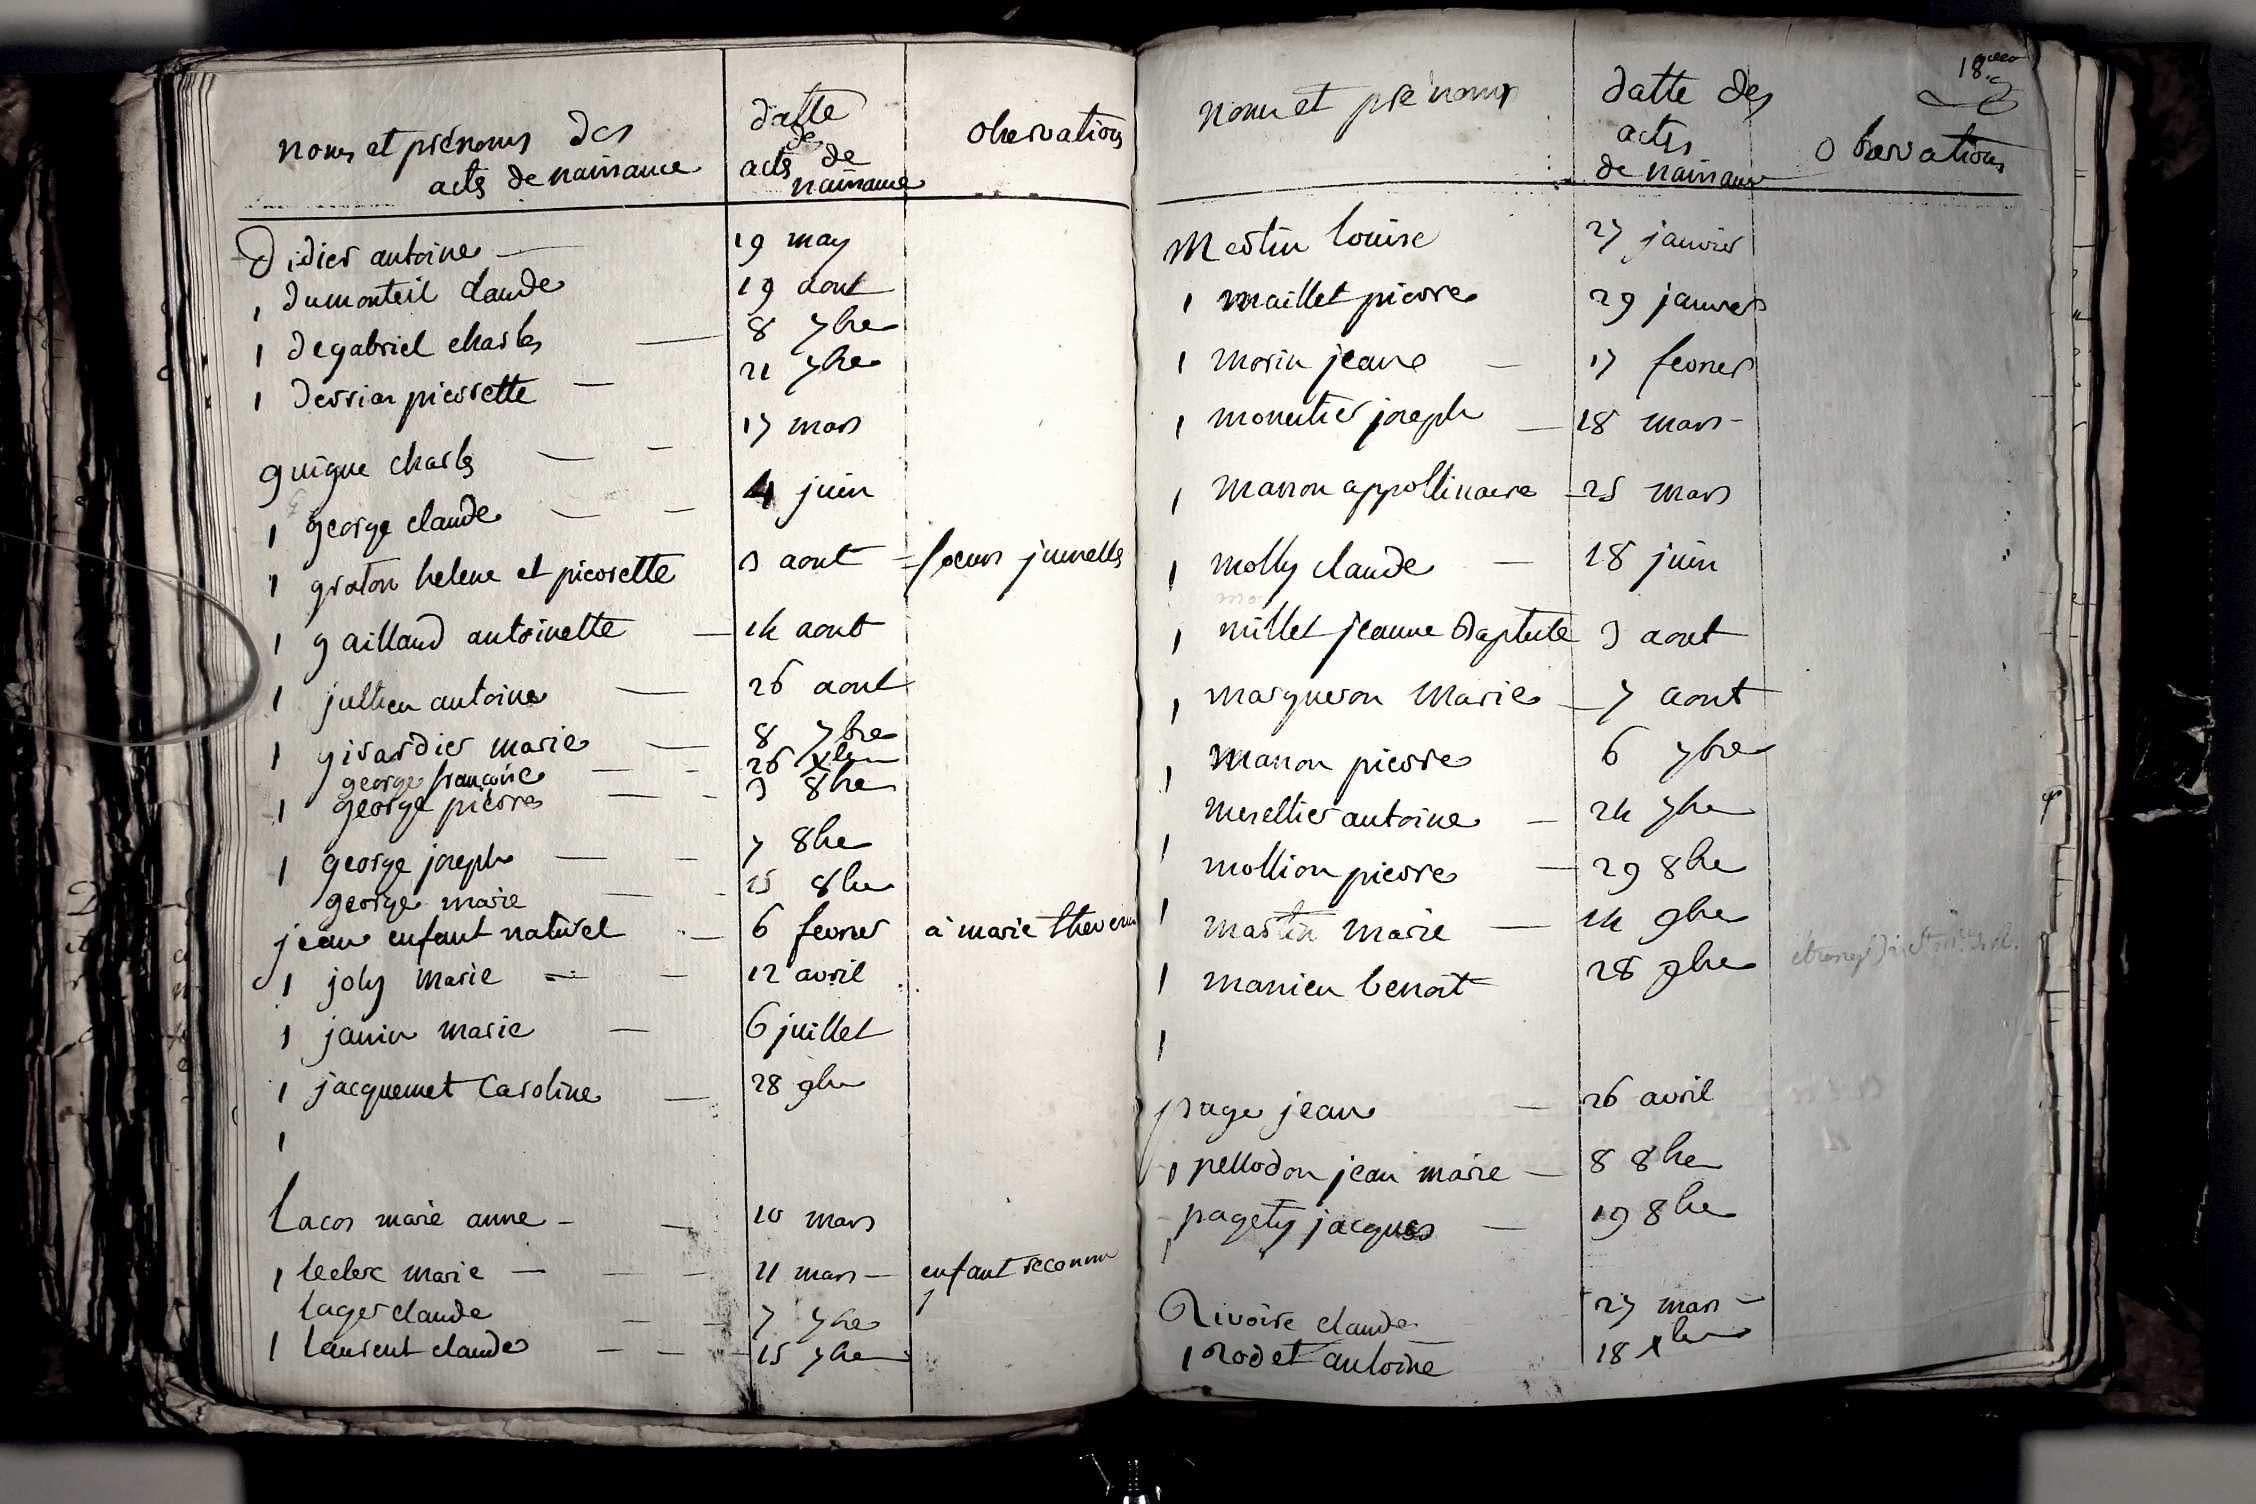 noms et prénoms des
actes de naissance
datte
des
actes de
naissance
observations
Didier antoine - 19 may
1 dumonteil claude 19 aout
1 degabriel charles - 8 7bre
1 derrion pierrette - 21 7bre
guigue charles - - 17 mars
1 george claude - - 4 juin
1 graton helene et pierrette 3 aout = soeurs jumelles
1 gaillard antoinette - 14 aout
1 jullien antoine - 26 aout
1 girardier marie - 8 7bre
george françoise - - 26 xbre
1 george pierre - - 3 8bre
1 george joseph - - 7 8bre
george marie - - 15 8bre
jean enfant naturel - 6 fevrier à marie thevenin
1 joly marie - - 12 avril
1 janin marie - 6 juillet
1 jacquemet Caroline - 28 9bre
1
Lacos marie anne - - 10 mars
1 leclerc marie - - - 21 mars - enfant reconnu
lager claude - - 7 7bre
1 laurent claude - - - 15 7bre
18
noms et prénoms
datte des
actes
de naissance
observations
Mertin louise 27 janvier
1 maillet pierre 29 janvier
1 morin jeane - 17 fevrier
1 monestier joseph - 18 mars -
1 manon appollinaire - 25 mars
1 molly claude - 18 juin
1 millet jeanne Baptiste 3 aout
1 margueron Marie - 7 aout
1 manon pierre 6 7bre
merellier antoine - 24 7bre
1 mollion pierre - 29 8bre
1 martin marie - 14 9bre
1 manieu benoit 28 9bre
1
page jean - 26 avril
1 pellodon jean marie - 8 8bre
pagety jacques - 19 8bre
1
Rivoire claude 27 mars -
1 rodet antoine 18 xbre